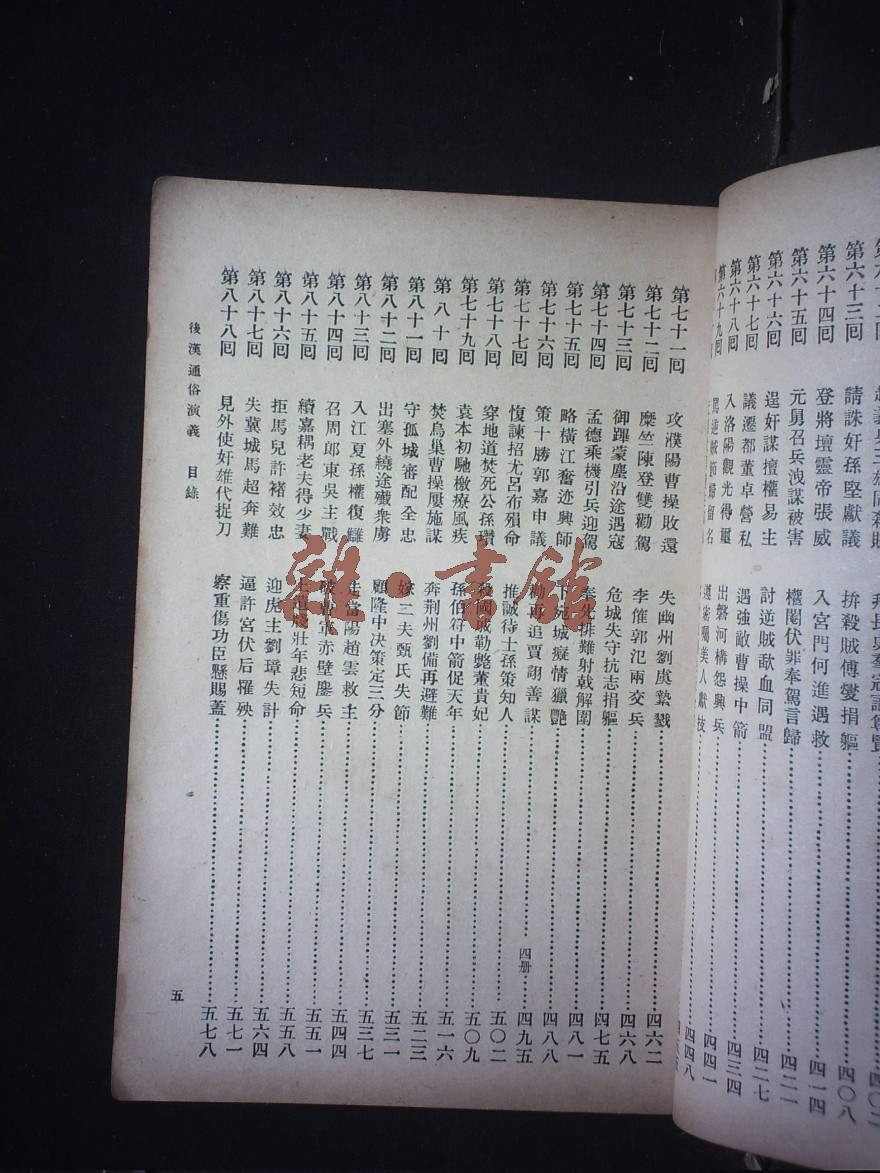 第六十三回 請誅奸孫堅獻議 拚殺賊傅燮捐軀 四〇八
第六十四回 登將壇靈帝張威 入宮門何進遇救 四一四
第六十五回 元舅召兵洩謀被害 權閹伏罪奉駕言歸 四二一
第六十六回 逞奸謀擅權易主 討逆賊歃血同盟 四二七
第六十七回 議遷都董卓營私 遇強敵曹操中箭 四三四
第六十八回 入洛陽觀光得璽 出磐河構怨興兵 四四一
第六十九回 罵逆賊節婦留名 遵密囑美人獻技 四四八
第七十一回 攻濮陽曹操敗還 失幽州劉虞縶戮 四六二
第七十二回 糜竺陳登雙勸駕 李傕郭汜兩交兵 四六八
第七十三回 御蹕蒙塵沿途遇寇 危城失守抗志捐軀 四七五
第七十四回 孟德乘機引兵迎駕 奉先排難射戟解圍 四八一
第七十五回 略橫江奮迹興師 下宛城癡情獵艷 四八八
第七十六回 策十勝郭嘉申議 勸再追賈詡善謀 四册 四九五
第七十七回 愎諫招尤呂布殞命 推誠待士孫策知人 五〇二
第七十八回 穿地道焚死公孫瓚 殺國戚勒斃董貴妃 五〇九
第七十九回 袁本初馳檄療風疾 孫伯符中箭促天年 五一六
第八十回 焚烏巢曹操屢施謀 奔荆州劉備再避難 五二三
第八十一回 守孤城審配全忠 嫁二夫甄氏失節 五三一
第八十二回 出塞外繞途殲衆虜 顧隆中決策定三分 五三七
第八十三回 入江夏孫權復讎 走當陽趙雲救主 五四四
第八十四回 召周郎東吳主戰 破曹軍赤壁鏖兵 五五一
第八十五回 續嘉耦老夫得少妻 上遺牋壯年悲短命 五五八
第八十六回 拒馬兒許褚效忠 迎虎主劉璋失計 五六四
第八十七回 失冀城馬超奔難 逼許宮伏后罹殃 五七一
第八十八回 見外使奸雄代捉刀 察重傷功臣懸賜蓋 五七八
後漢通俗演義 目錄
五
雜·書館